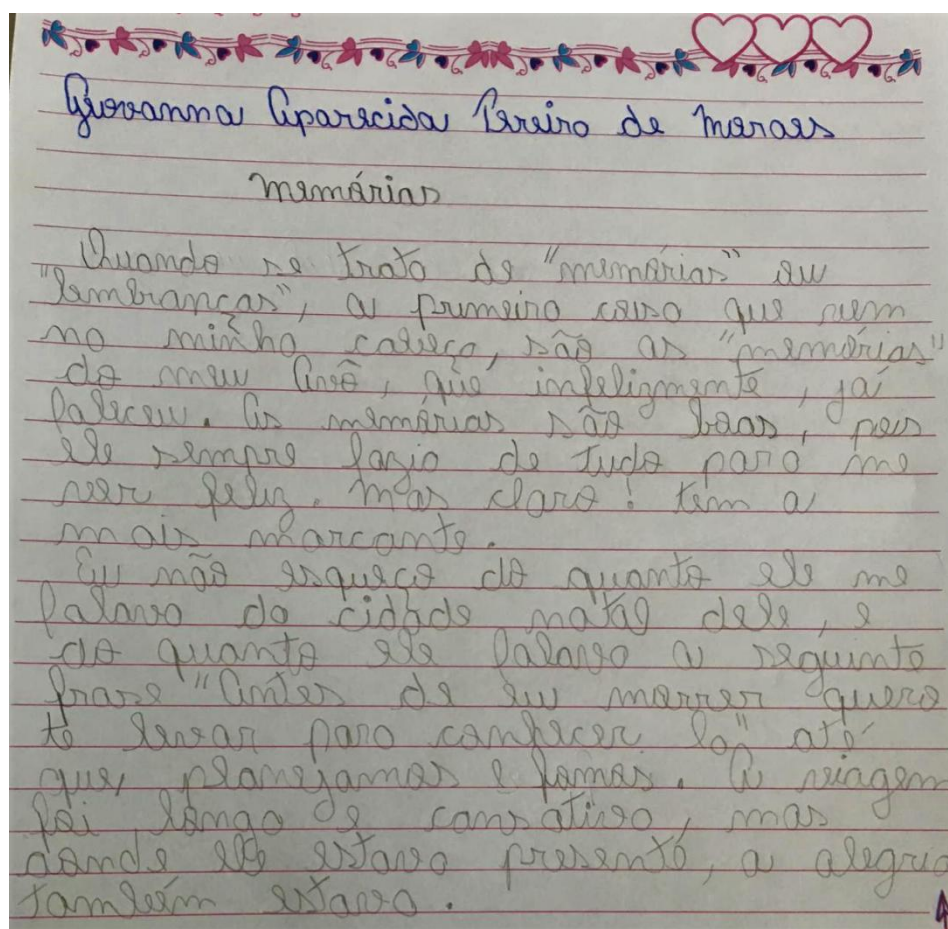 Giovanna Aparecida Pereira de Moraes
Memórias
Quando se trata de "memórias" ou
"lembranças", a primeira coisa que vem
na minha cabeça, são as "memórias"
do meu Avô, que infelizmente, já
faleceu. As memórias são boas, pois
ele sempre fazia de tudo para me
ver feliz. Mas claro! tem a
mais marcante.
Eu não esqueço do quanto ele me
falava da cidade natal dele, e
do quanto ele falava a seguinte
frase "Antes de eu morrer quero
te levar para conhecer lá" até
que, planejamos e fomos. A viagem
foi longa e cansativa, mas
donde ele estava presente, a alegria
também estava.